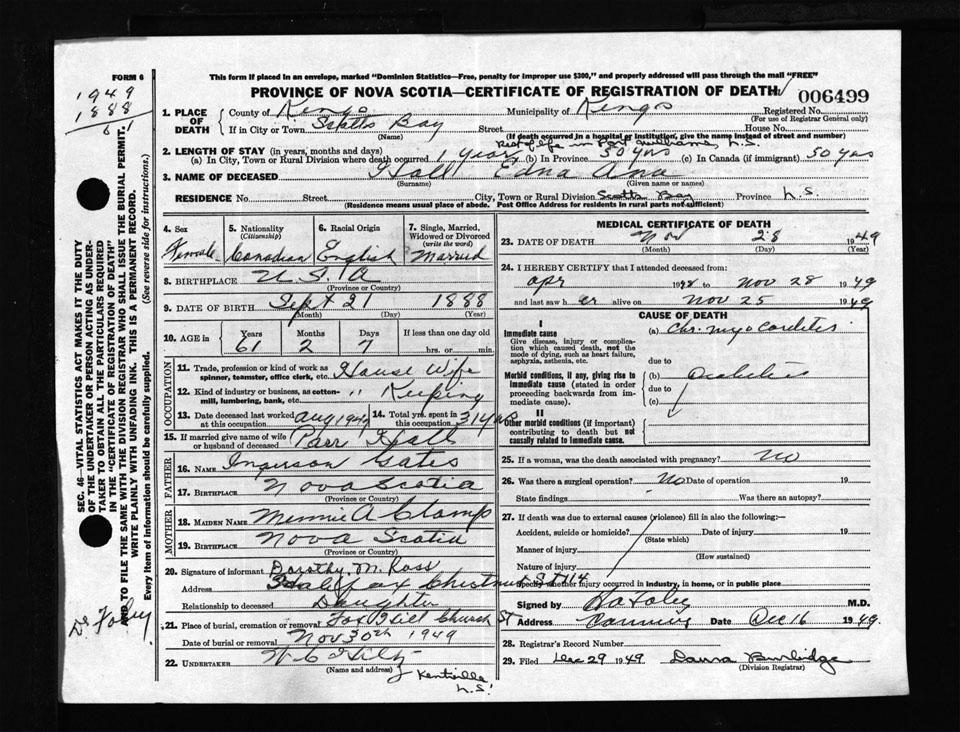 FORM 6
This form if placed in an envelope, marked "Dominion Statistics—Free, penalty for improper use $300," and properly addressed will pass through the mail "FREE"
PROVINCE OF NOVA SCOTIA—CERTIFICATE OF REGISTRATION OF DEATH
006499
1949
1888
61
1. PLACE OF DEATH
County of Kings Municipality of Kings Registered No.
(For use of Registrar General only)
If in City or Town Scotts Bay Street House No.
(Name) (If death occurred in a hospital or institution, give the name instead of street and number)
Rest of life in Port Williams, N.S.
2. LENGTH OF STAY (in years, months and days)
(a) In City, Town or Rural Division where death occurred 1 Year (b) In Province 50 yrs (c) In Canada (if immigrant) 50 yrs
3. NAME OF DECEASED Hall Edna Ana
(Surname) (Given name or names)
RESIDENCE No. Street City, Town or Rural Division Scotts Bay Province N.S.
(Residence means usual place of abode. Post Office Address for residents in rural parts not sufficient)
4. Sex Female
5. Nationality (Citizenship) Canadian
6. Racial Origin English
7. Single, Married, Widowed or Divorced (write the word) Married
8. BIRTHPLACE U S A
(Province or Country)
9. DATE OF BIRTH Sept 21 1888
(Month) (Day) (Year)
10. AGE in Years Months Days If less than one day old
61 2 7 hrs. or min.
OCCUPATION
11. Trade, profession or kind of work as spinner, teamster, office clerk, etc. House Wife
12. Kind of industry or business, as cotton-mill, lumbering, bank, etc. " Keeping
13. Date deceased last worked at this occupation Aug 1949
14. Total yrs. spent in this occupation 31 yrs
15. If married give name of wife or husband of deceased Parr Hall
FATHER
16. NAME Ingerson Gates
17. BIRTHPLACE Nova Scotia
(Province or Country)
MOTHER
18. MAIDEN NAME Minnie A Clamp
19. BIRTHPLACE Nova Scotia
(Province or Country)
20. Signature of informant Dorothy M. Ross
Address Halifax Chestnut St
Relationship to deceased Daughter
21. Place of burial, cremation or removal Fox Hill Church St
Date of burial or removal Nov 30th 1949
22. UNDERTAKER
(Name and address) Kentville N.S.
MEDICAL CERTIFICATE OF DEATH
23. DATE OF DEATH Nov 28 1949
(Month) (Day) (Year)
24. I HEREBY CERTIFY that I attended deceased from:
Apr 1948 to Nov 28 1949
and last saw her alive on Nov 25 1949
CAUSE OF DEATH
I
Immediate cause (a) Chr. myocarditis
Give disease, injury or complication which caused death, not the mode of dying, such as heart failure, asphyxia, asthenia, etc.
due to
Morbid conditions, if any, giving rise to immediate cause (stated in order proceeding backwards from immediate cause).
(b) Diabetes
due to
(c)
II
Other morbid conditions (if important) contributing to death but not causally related to immediate cause.
25. If a woman, was the death associated with pregnancy? No
26. Was there a surgical operation? No Date of operation 19
State findings Was there an autopsy?
27. If death was due to external causes (violence) fill in also the following:—
Accident, suicide or homicide? Date of injury 19
(State which)
Manner of injury
(How sustained)
Nature of injury
Specify whether injury occurred in industry, in home, or in public place
Signed by M.D.
Address Canning Date Dec 16 1949
28. Registrar's Record Number
29. Filed Dec 29 1949 Laura Burbidge
(Division Registrar)
SEC. 46—VITAL STATISTICS ACT MAKES IT THE DUTY
OF THE UNDERTAKER OR PERSON ACTING AS UNDER-
TAKER TO OBTAIN ALL THE PARTICULARS REQUIRED
IN THE "CERTIFICATE OF REGISTRATION OF DEATH"
AND TO FILE THE SAME WITH THE DIVISION REGISTRAR WHO SHALL ISSUE THE BURIAL PERMIT.
WRITE PLAINLY WITH UNFADING INK. THIS IS A PERMANENT RECORD.
Every item of information should be carefully supplied. (See reverse side for instructions.)
Dr Foley